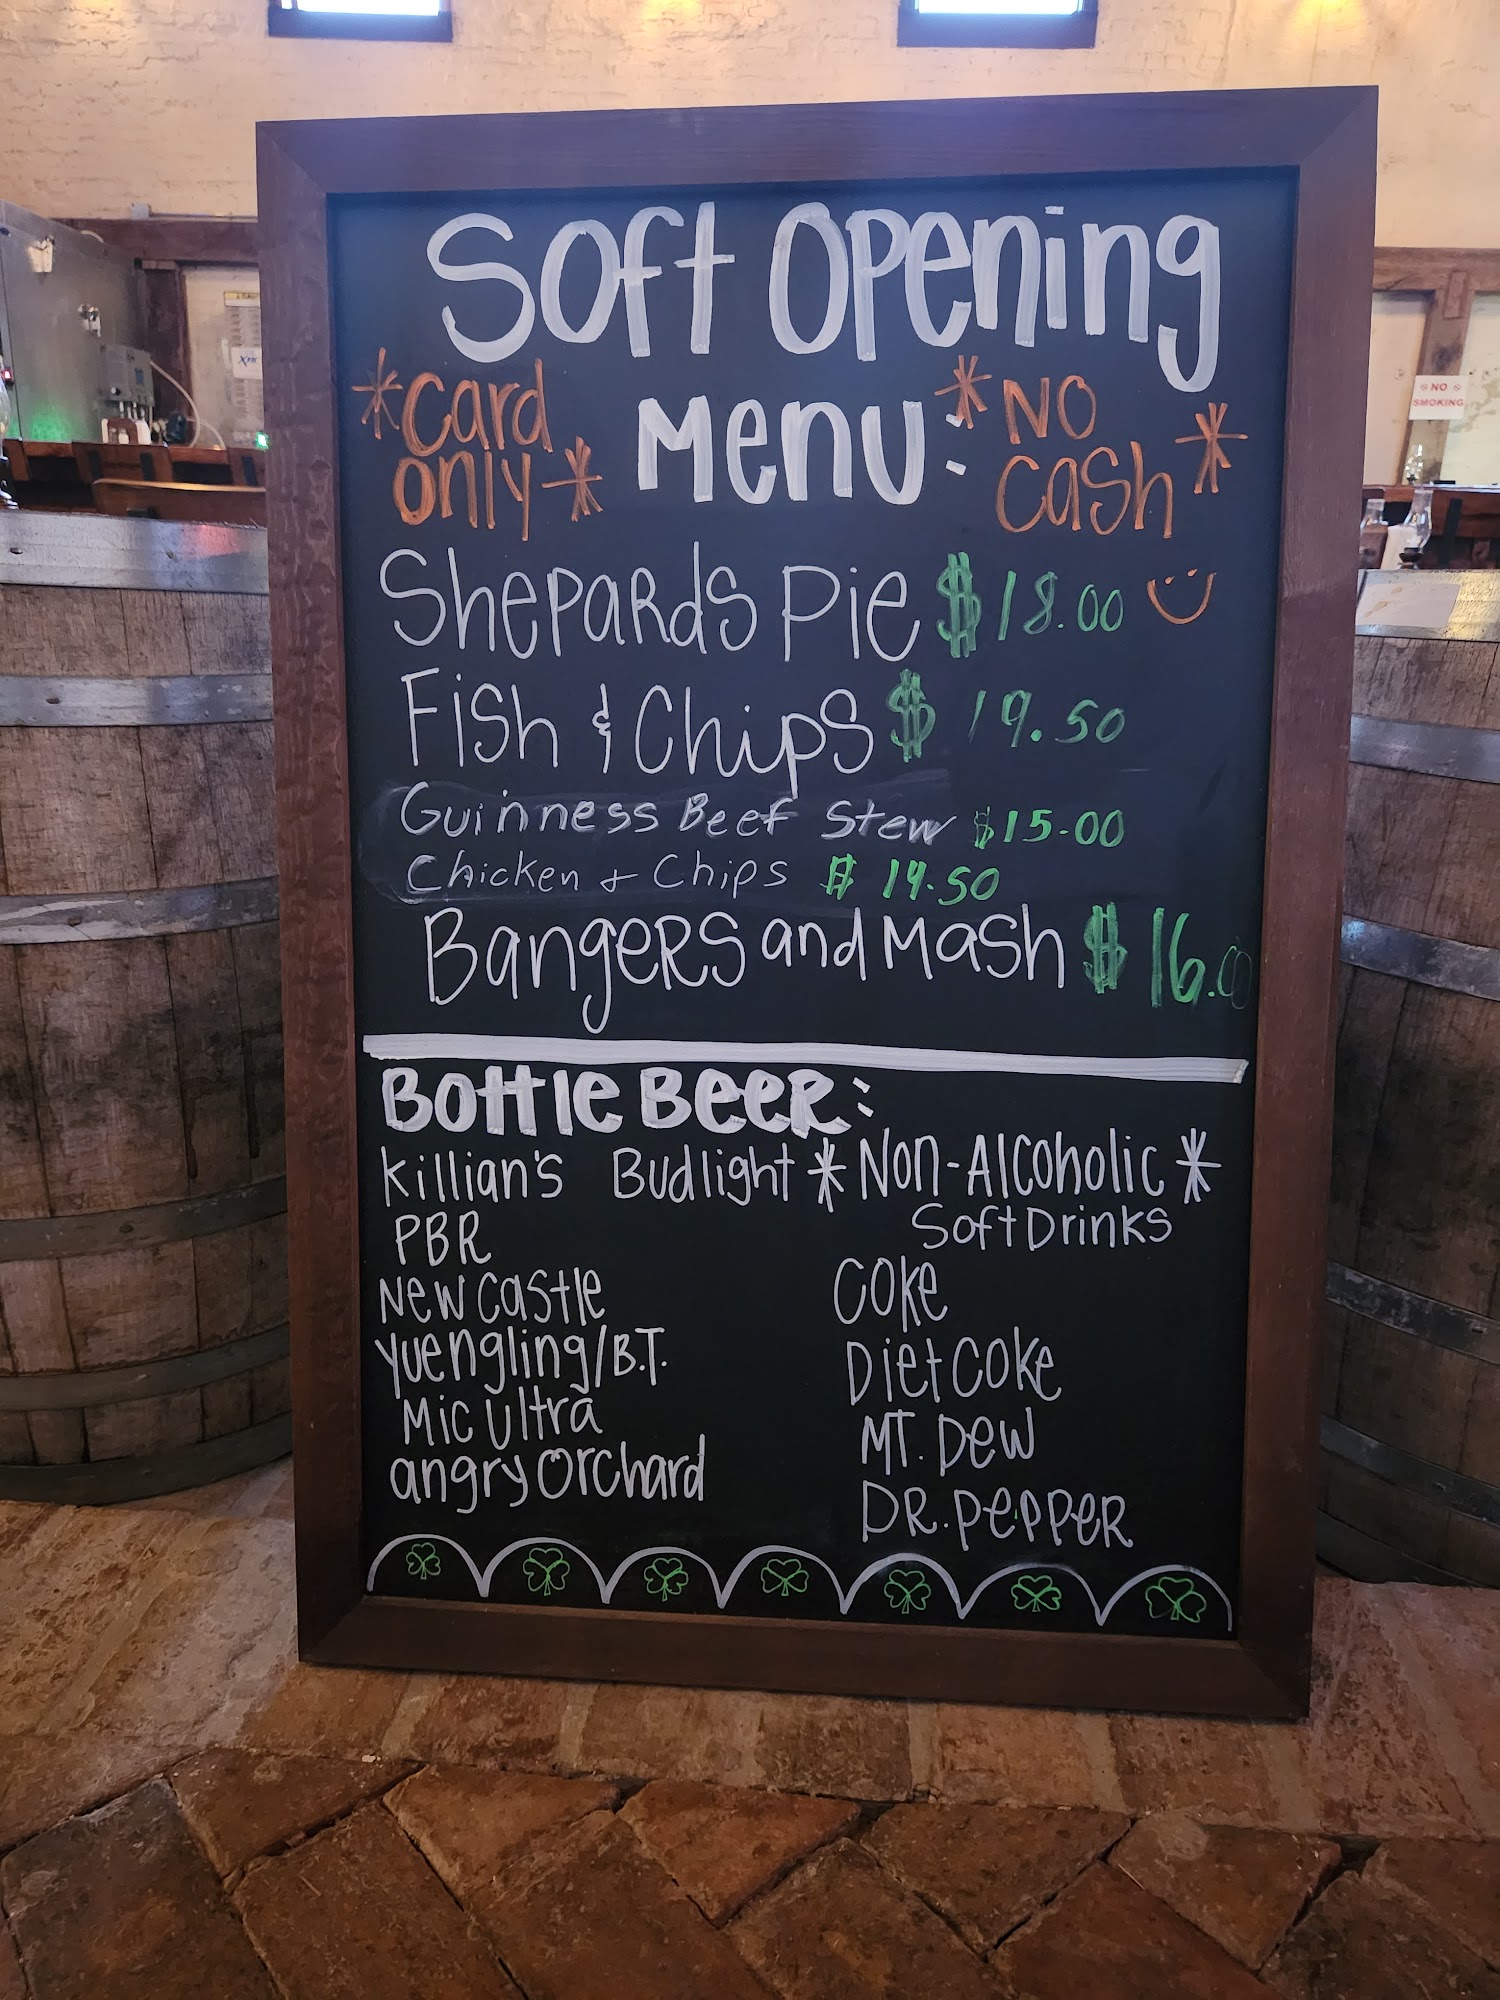 Soft Opening
*Card only* Menu: *No Cash*
Shepards Pie $18.00
Fish & Chips $ 19.50
Guinness Beef Stew $15.00
Chicken + Chips $ 14.50
Bangers and Mash $16.00
Bottle Beer:
Killian's Budlight *Non-Alcoholic*
PBR Soft Drinks
New Castle Coke
Yuengling/B.T. Diet Coke
Mic Ultra Mt. Dew
angry Orchard DR. Pepper
NO SMOKING